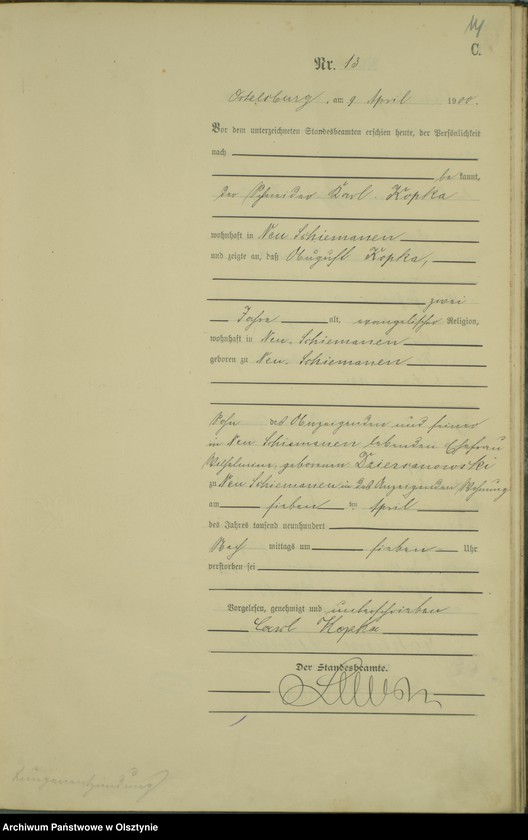 14
C.
Nr. 13
Ortelsburg, am 9 April 1900.
Vor dem unterzeichneten Standesbeamten erschien heute, der Persönlichkeit
nach
bekannt,
der Schneider Karl Kopka
wohnhaft in Neu Schiemanen
und zeigte an, daß August Kopka,
zwei
Jahre alt, evangelischer Religion,
wohnhaft in Neu. Schiemanen
geboren zu Neu. Schiemanen
Sohn des Anzeigenden und seiner
in Neu Schiemanen lebenden Ehefrau
Wilhelmine, geborenen Dzierzanowski
zu Neu Schiemanen in des Anzeigenden Wohnung
am sieben ten April
des Jahres tausend neunhundert
Nach mittags um sieben Uhr
verstorben sei
Vorgelesen, genehmigt und unterschrieben
Carl Kopka
Der Standesbeamte.
Lungenentzündung
Archiwum Państwowe w Olsztynie